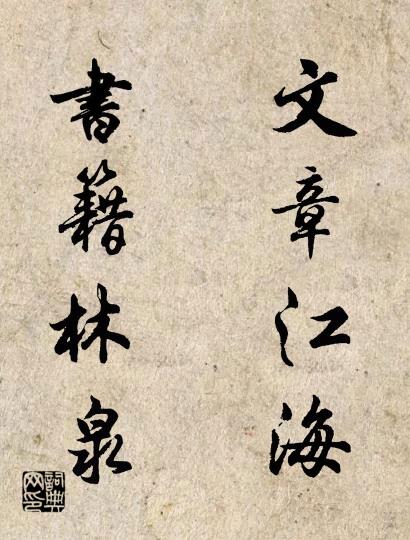 文章江海
書籍林泉
詞典网印